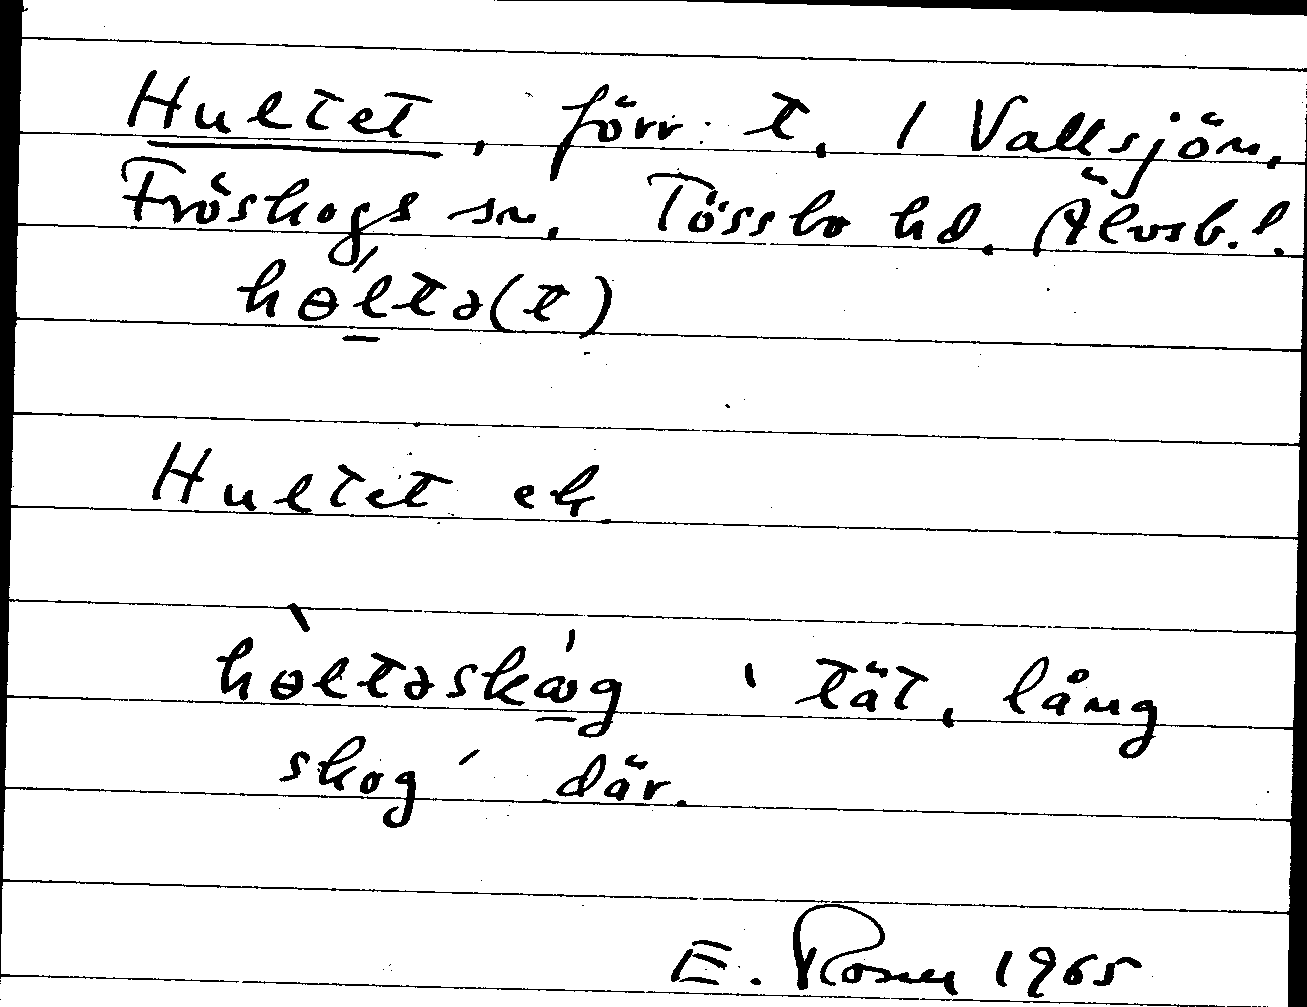 Hultet, förr t. 1 Vallsjön,
Fröskogs sn, Tössbo hd. Älvsb. l.
hɵ́l̲tə(t)
Hultet ek
hɵ̀ltəskɷ̲́g ' tät, lång
skog ' där.
E. Rosen 1965